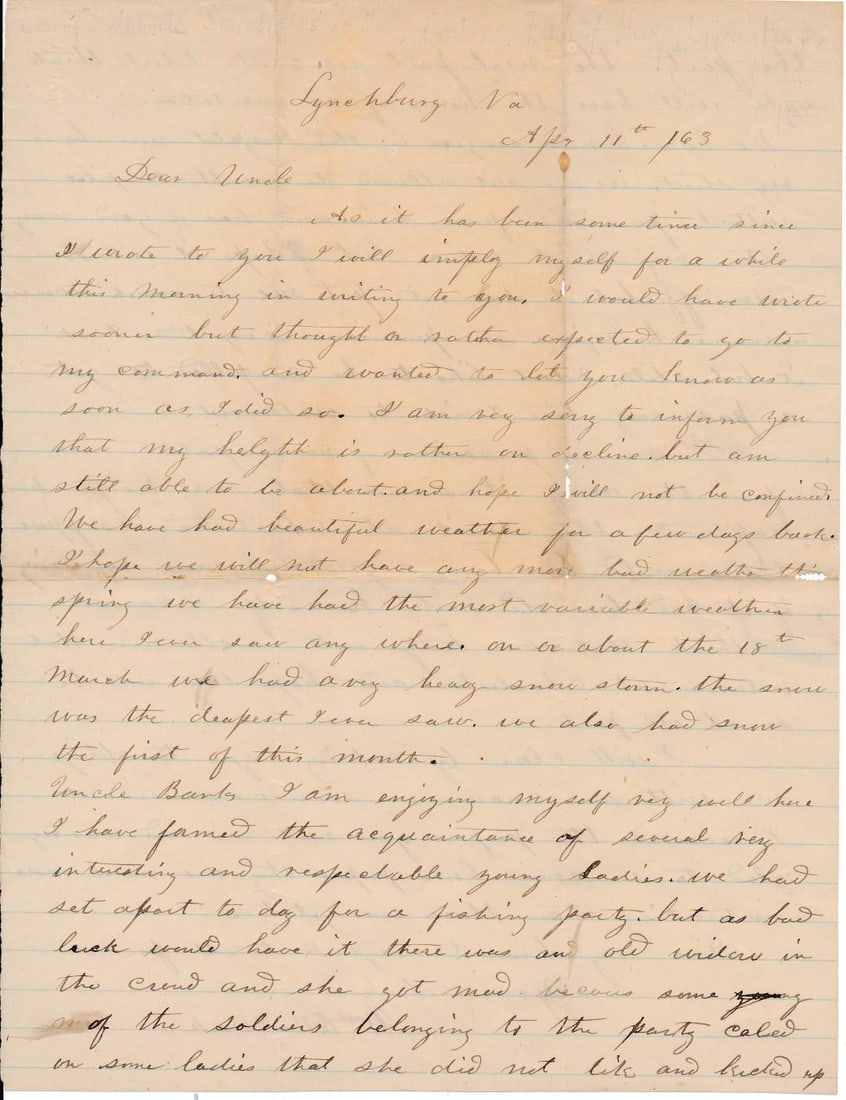 Lynchburg Va
Apr 11th /63
Dear Uncle
As it has been some time since
I wrote to you I will imploy myself for a while
this Morning in writing to you. I would have wrote
sooner but thought or rather expected to go to
my command. and wanted to let you know as
soon as I did so. I am very sorry to inform you
that my helght is rather on decline. but am
still able to be about. and hope I will not be confined.
We have had beautiful weather for a few days back.
I hope we will not have any more bad weather this
spring we have had the most variable weather
here I ever saw any where. on or about the 18th
March we had a very heavy snow storm. the snow
was the deapest I ever saw. we also had snow
the first of this month.
Uncle Banks I am enjoying myself very well here
I have formed the acquaintance of several very
interesting and respectable young Ladies. we had
set apart to day for a fishing party. but as bad
luck would have it there was and old widow in
the croud and she got mad becaus some young
of the soldiers belonging to the party caled
on some ladies that she did not lik and kicked up